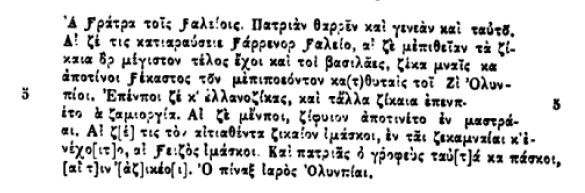 Ἀ ϝράτρα τοῖς ϝαλείοις. Πατριὰν θαρρε͂ν καὶ γενεὰν καὶ ταὐτο͂.
Αἰ ζέ τις κατιαραύσειε ϝάρρενορ ϝαλείο, αἰ ζὲ μἐπιθεῖαν τὰ ζί-
καια ὂρ μέγιστον τέλος ἔχοι καὶ τοὶ βασιλᾶες, ζέκα μναῖς κα
ἀποτίνοι ϝέκαστος τον μἐπιποεόντον κα(τ)θυταὶς τοῖ Ζὶ Ὀλυν-
5 πίοι. Ἐπένποι ζέ κ' ἐλλανοζίκας, καὶ τἄλλα ζίκαια ἐπενπ- 5
έτο ἀ ζαμιοργία. Αἰ ζὲ μἔνποι, ζίφυιον ἀποτινέτο ἐν μαστρά-
αι. Αἰ ζ[έ] τις τὸν αἰτιαθέντα ζικαίον ἰμάσκοι, ἐν τᾶι ζεκαμναίαι κ' ἐ-
νέχο[ιτ]ο, αἰ ϝειζὸς ἰμάσκοι. Καὶ πατριᾶς ὀ γροφεὺς ταὐ[τ]ά κα πάσκοι,
[αἴ τ]ιν' [ἀζ]ικέο[ι]. Ὀ πίναξ ἰαρὸς Ὀλυνπίαι.